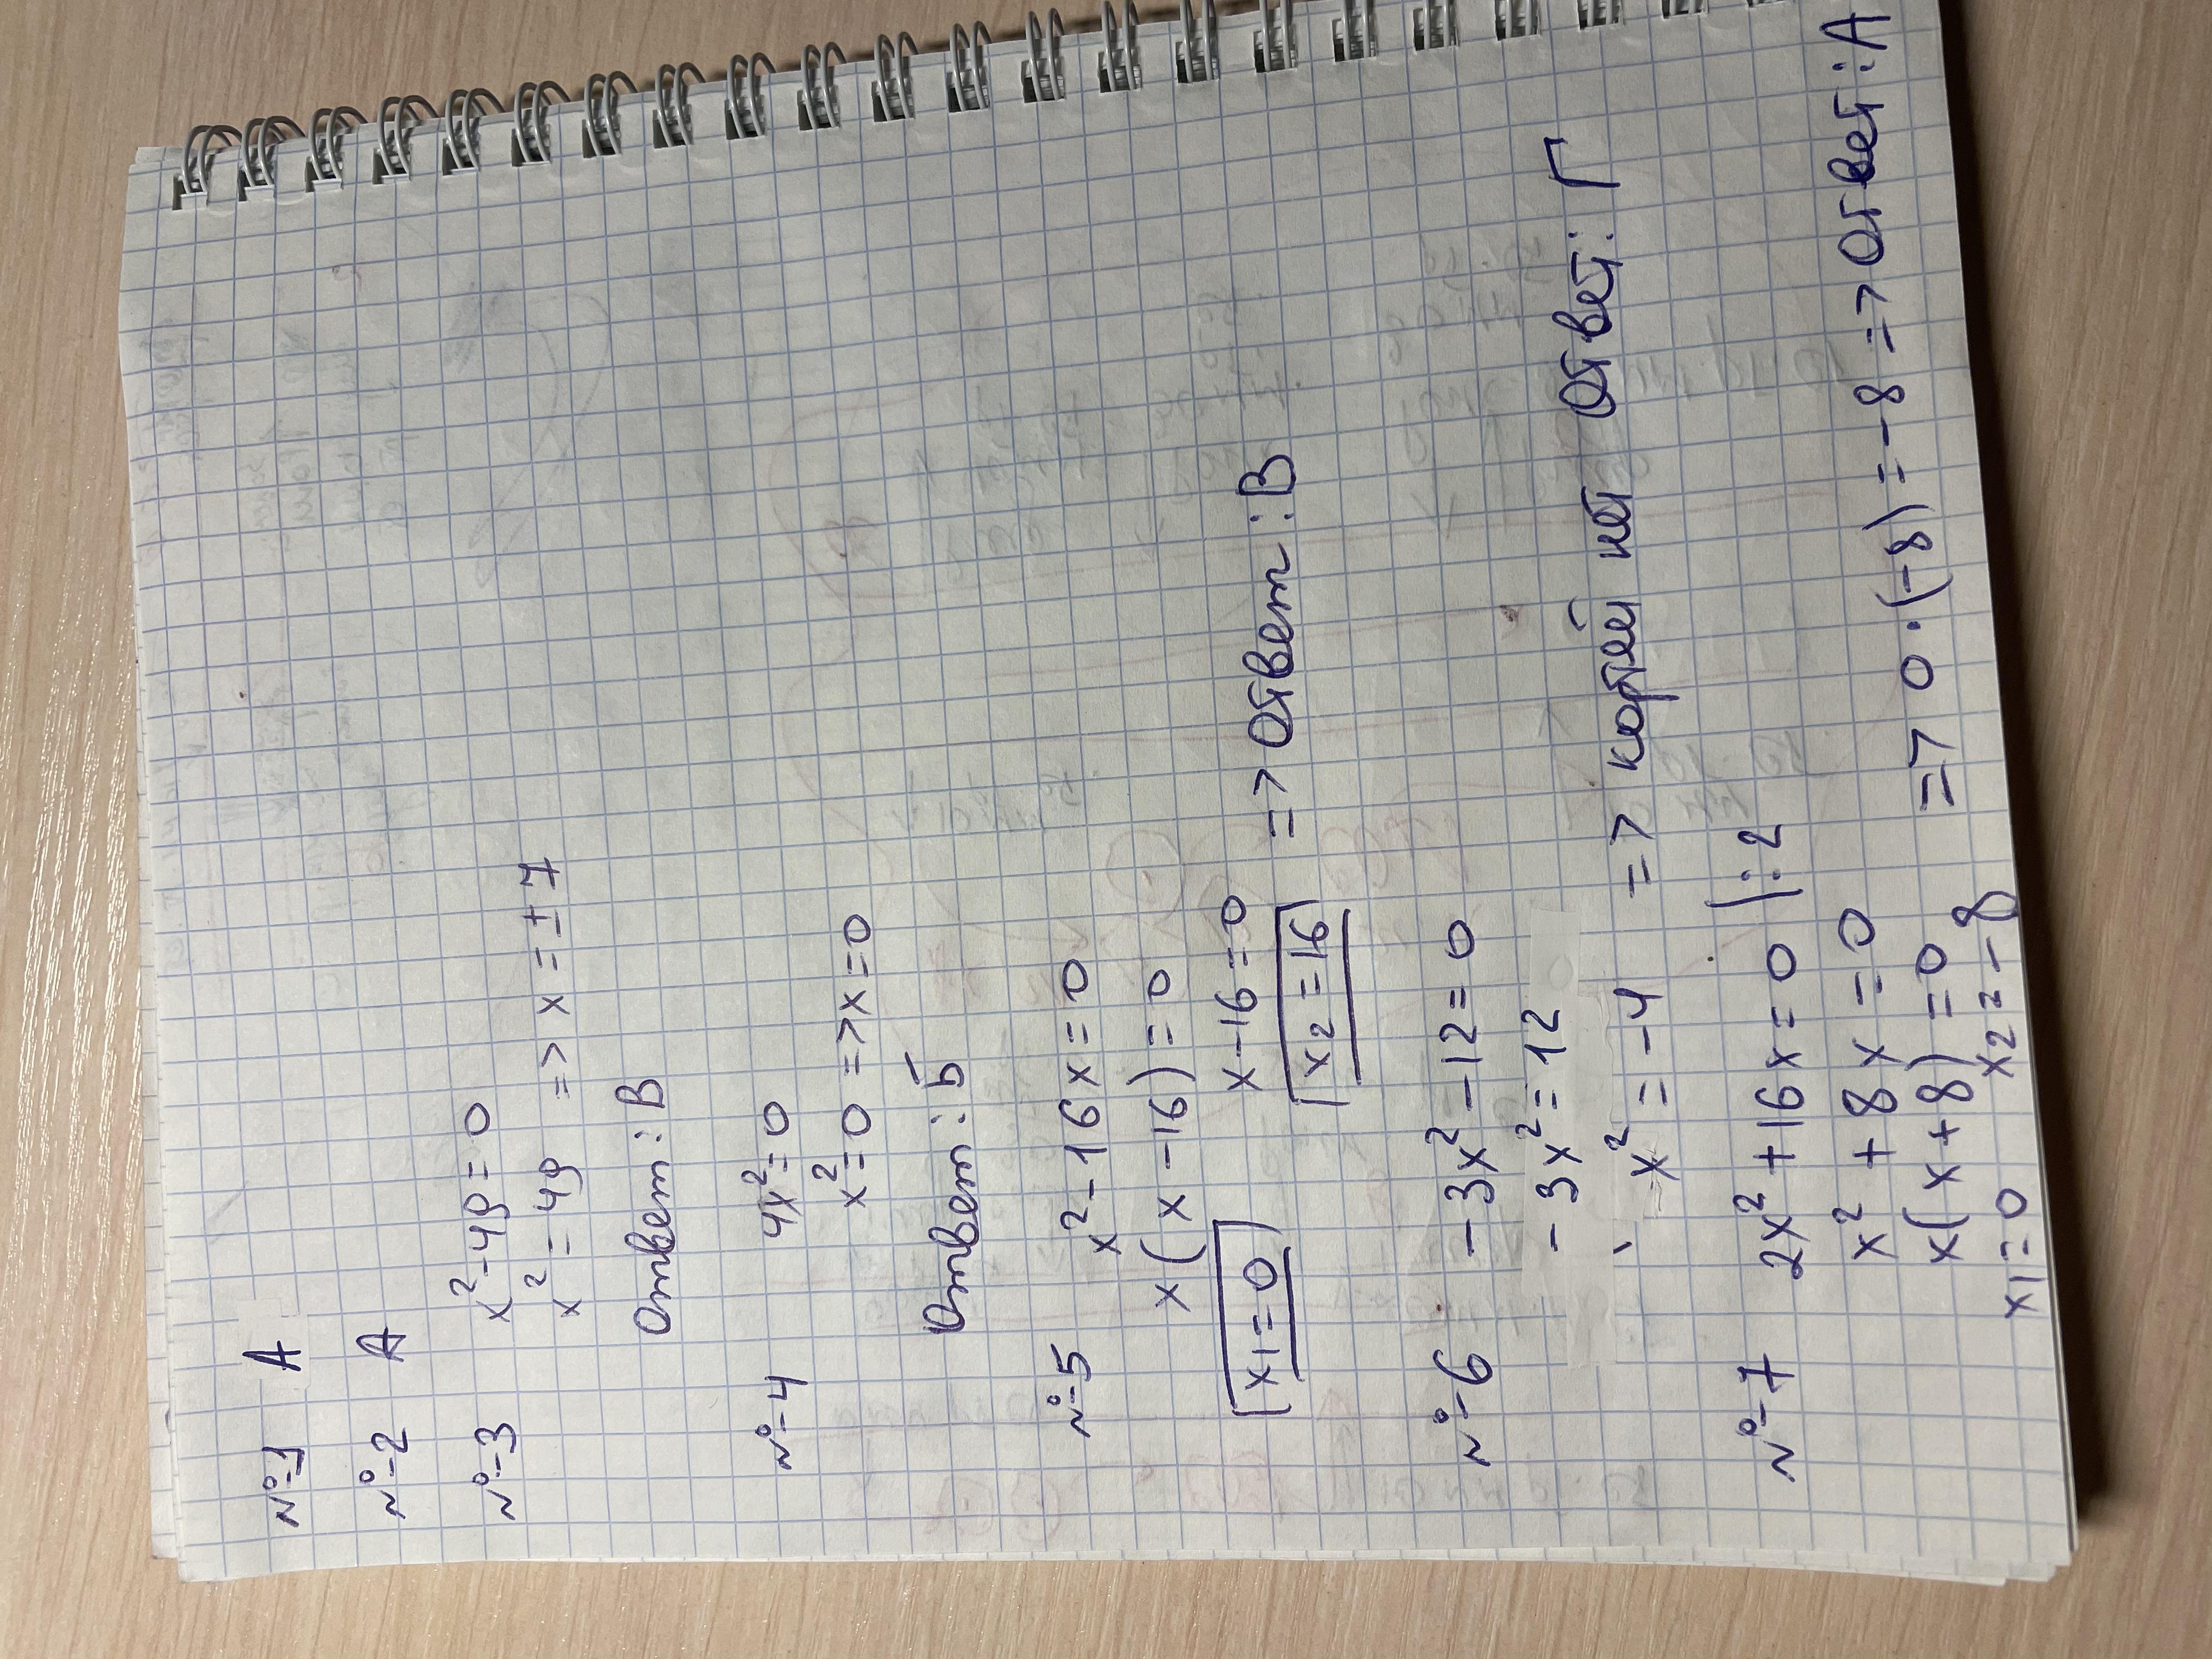 №1 А
№2 А
№3 x²-49=0
x²=49 => x=±7
Ответ: В
№4 4x²=0
x²=0 => x=0
Ответ: Б
№5 x²-16x=0
x(x-16)=0
x1=0 x-16=0
x2=16 => ответ: В
№6 -3x²-12=0
-3x²=12
x²=-4 => корней нет ответ: Г
№7 2x²+16x=0 |:2
x²+8x=0
x(x+8)=0
x1=0 x2=-8 => 0·(-8)=-8 => ответ: А